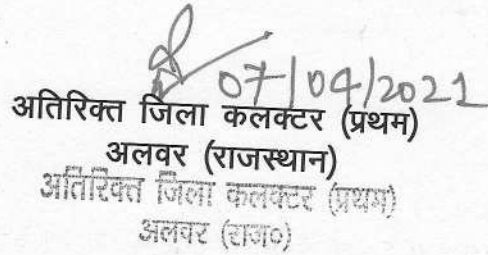 07/04/2021
अतिरिक्त जिला कलक्टर (प्रथम)
अलवर (राजस्थान)
अतिरिक्त जिला कलक्टर (प्रथम)
अलवर (राज०)